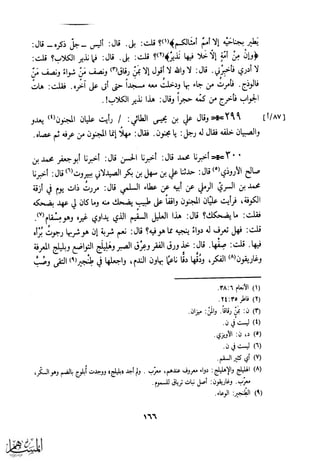 يطير بجناحيه إلا أمم أمثالكم﴾(١)؟ قلت: بلى. قال: أليس -جلّ ذكره- قال:
﴿وإن من أمة إلا خلا فيها نذير﴾(٢)؟ قلت: بلى. قال: فما نذير الكلاب؟ قلت:
لا أدري فأخبرني. قال: لا والله لا أقول إلا بمنّ رقاق(٣) ونصف منّ شواء ونصف منّ
فالوذج. فأمرت من جاء بها ودخلت معه مسجداً حتى أتى على آخره. فقلت: هات
الجواب فأخرج من كمّه حجراً وقال: هذا نذير الكلاب!.
٢٩٩ وقال علي بن يحيى الطائي: / رأيت عليان المجنون(٤) يعدو [١/٨٧]
والصبيان خلفه فقال له رجل: يا مجنون. فقال: مهلاً إنما المجنون من عرفه ثم عصاه.
٣٠٠ أخبرنا محمد قال: أخبرنا الحسن قال: أخبرنا أبو جعفر محمد بن
صالح الأروذي(٥) قال: حدثنا علي بن سهل بن بكر الصيدلاني ببيروت(٦) قال: أخبرنا
محمد بن السري الرملي عن أبيه عن عطاء السلمي قال: مررت ذات يوم في أزقة
الكوفة، فرأيت عليان المجنون واقفاً على طبيب يضحك منه وما كان لي عهد بضحكه
فقلت: ما يضحكك؟ قال: هذا العليل السقيم الذي يداوي غيره وهو مسقام(٧).
قلت: فهل تعرف له دواءً ينجيه مما هو فيه؟ قال: نعم شربة إن هو شربها رجوت بُرأه
فيها. قلت: صِفها. قال: خذ ورق الفقر وعِرق الصبر وهليلج التواضع وبليلج المعرفة
وغاريقون(٨) الفكر، ودُقها دقاً ناعماً بهاون الندم، واجعلها في طنجير(٩) التقى وصُبَّ
(١) الأنعام ٣٨:٦.
(٢) فاطر ٢٤:٣٥.
(٣) ن: بمنّ رقاقاً. والمنّ: ميزان.
(٤) ليست في ن.
(٥) د، ن: الأويزي.
(٦) ليست في ن.
(٧) أي كثير السقم.
(٨) الهليلج والإهليلج: دواء معروف عندهم، معرّب. ولم أجد «بليلج» ووجدت أبلوج بالضم وهو السكر،
معرّب. وغاريقون: أصل نبات ترياق للسموم.
(٩) الطنجير: الوعاء.
١٦٦